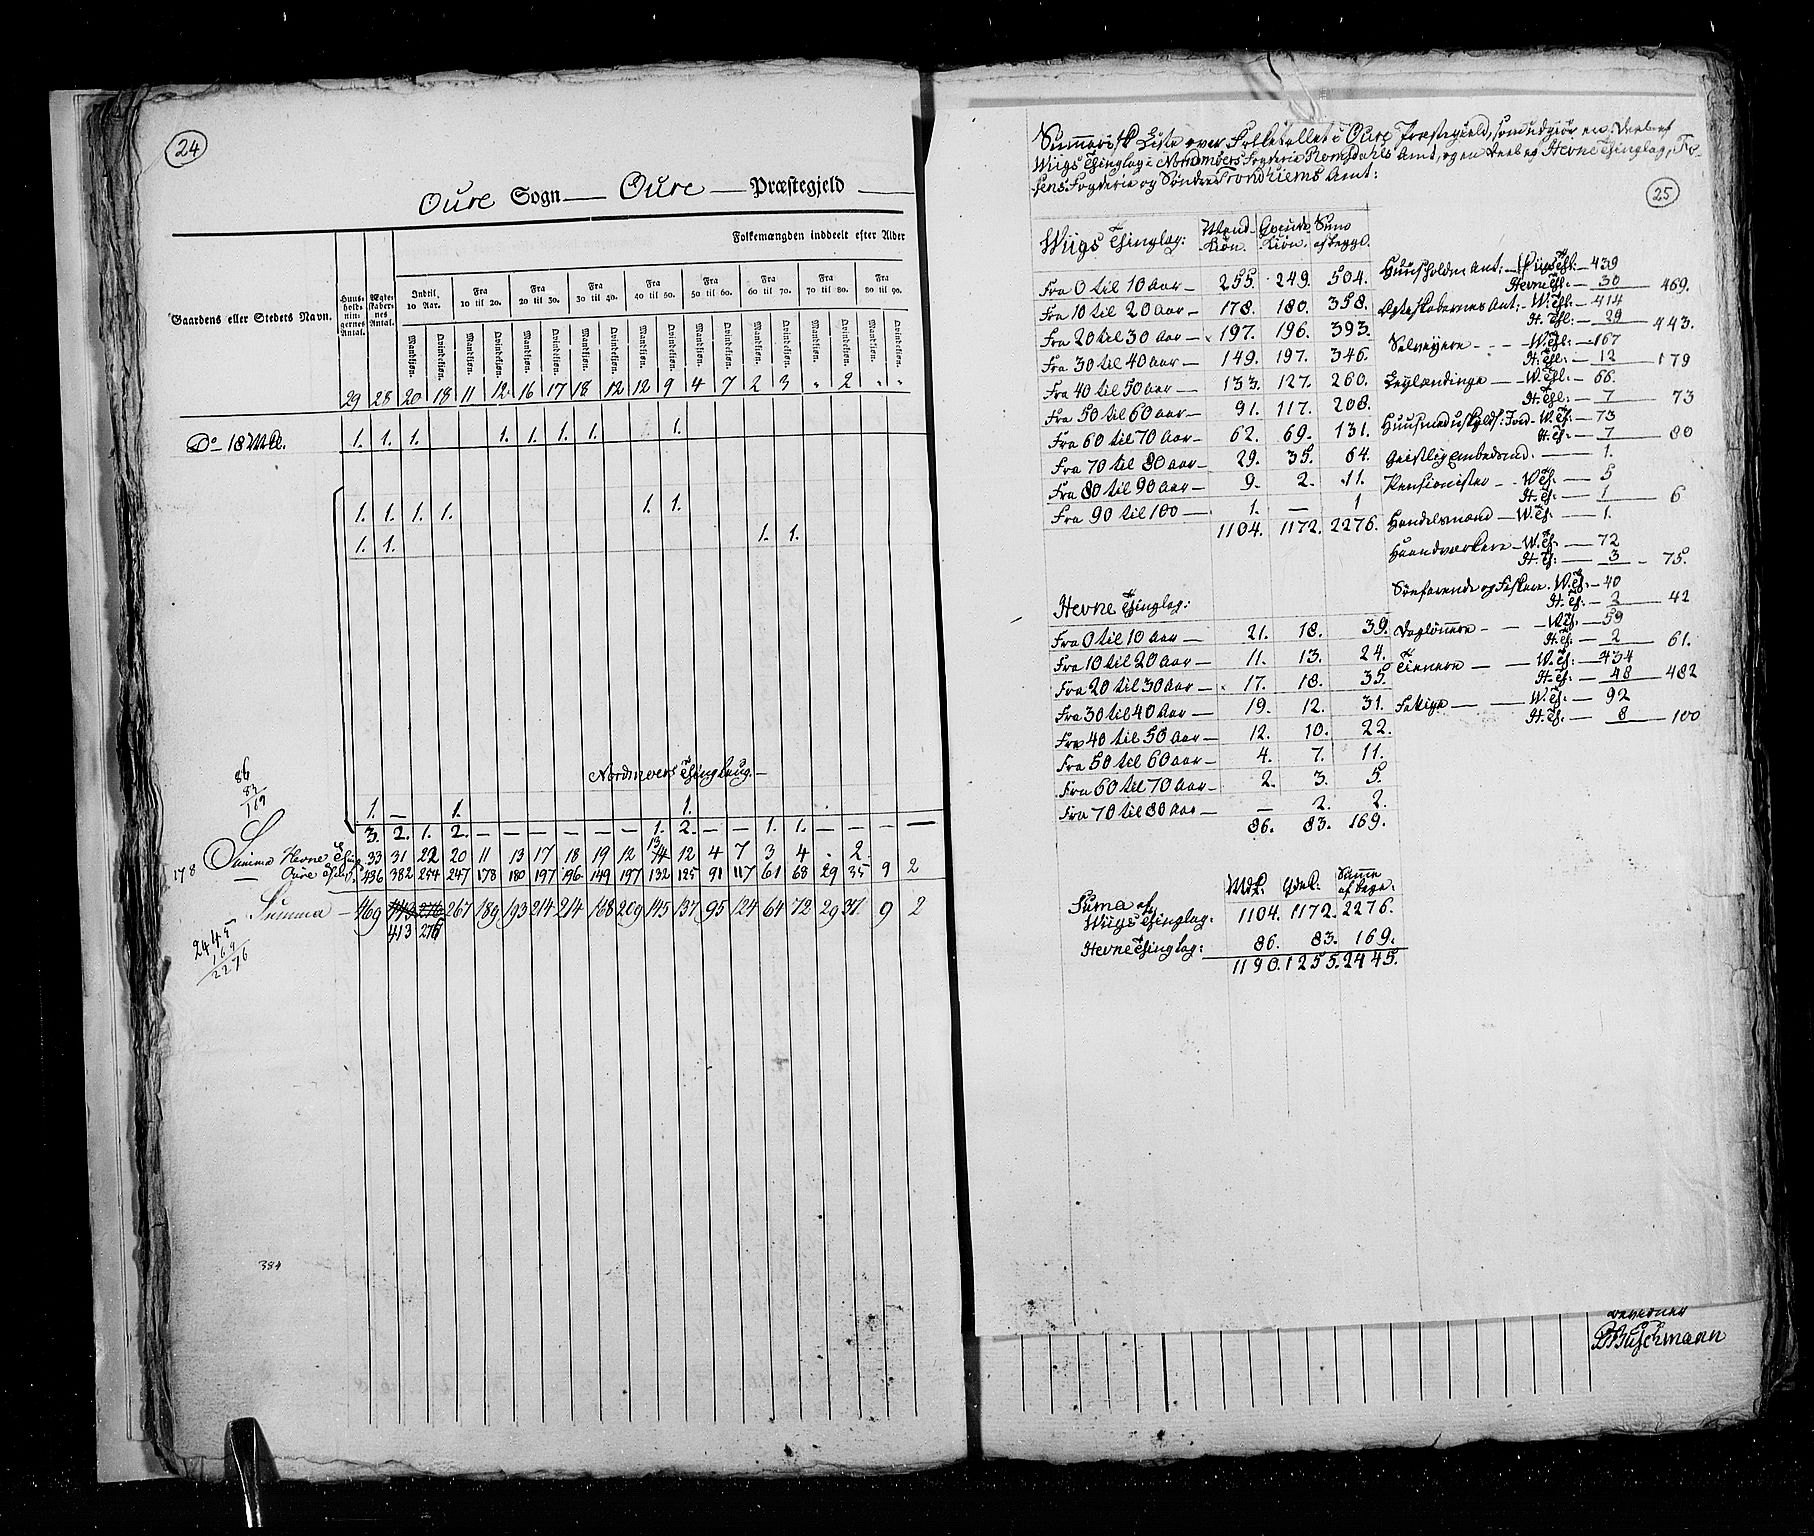 24
Oure Sogn — Oure — Præstegjeld
Folkemængden inddeelt efter Alder
Gaardens eller Stedets Navn.
Huus-holdnin-gernes Antal. Ægte-skaber-nes Antal.
Indtil 10 Aar. Fra 10 til 20. Fra 20 til 30. Fra 30 til 40. Fra 40 til 50. Fra 50 til 60. Fra 60 til 70. Fra 70 til 80. Fra 80 til 90.
Mandkjøn. Qvindekjøn. Mandkjøn. Qvindekjøn. Mandkjøn. Qvindekjøn. Mandkjøn. Qvindekjøn. Mandkjøn. Qvindekjøn. Mandkjøn. Qvindekjøn. Mandkjøn. Qvindekjøn. Mandkjøn. Qvindekjøn. Mandkjøn. Qvindekjøn.
29 28 20 18 11 12 16 17 18 12 12 9 4 7 2 3 " 2 " "
Do 18 Mk. 1. 1. 1. 1. 1. 1. 1. 1.
1. 1. 1. 1. 1. 1.
1. 1. 1. 1.
Nordmoers Thinglaug.—
86
83
169
1. — 1. 1.
3. 2. 1. 2. — — — — — — 1. 2. — — 1. 1. — — — —
Summa Hevne Thing 33 31 22 20 11 13 17 18 19 12 14 12 4 7 3 4 . 2
13
178 Oure 436 382 254 247 178 180 197 196 149 197 132 125 91 117 61 68 29 35 9 2
Summa — 469 443 276 267 189 193 214 214 168 209 145 137 95 124 64 72 29 37 9 2
413 276
2445
169
2276
384
25
Summarisk Liste over Folketallet i Oure Præstegield, som udgiør en Deel af
Wiigs Thinglag i Nordmørs Fogderie Romsdahls Amt, og en Deel af Hevne Thinglag, Fo-
sens Fogderie og Søndre Trondhiems Amt:
Wiigs Thinglag: Mand-Kiøn. Qvinde-Kiøn. Sum af begge.
Fra 0 til 10 Aar — 255. 249. 504.
Fra 10 til 20 Aar — 178. 180. 358.
Fra 20 til 30 Aar — 197. 196. 393.
Fra 30 til 40 Aar — 149. 197. 346.
Fra 40 til 50 Aar — 133. 127. 260.
Fra 50 til 60 Aar — 91. 117. 208.
Fra 60 til 70 Aar — 62. 69. 131.
Fra 70 til 80 Aar — 29. 35. 64.
Fra 80 til 90 Aar — 9. 2. 11.
Fra 90 til 100 — 1. — 1
1104. 1172. 2276.
Hevne Thinglag:
Fra 0 til 10 Aar — 21. 18. 39.
Fra 10 til 20 Aar — 11. 13. 24.
Fra 20 til 30 Aar — 17. 18. 35.
Fra 30 til 40 Aar — 19. 12. 31.
Fra 40 til 50 Aar — 12. 10. 22.
Fra 50 til 60 Aar — 4. 7. 11.
Fra 60 til 70 Aar — 2. 3. 5.
Fra 70 til 80 Aar — — 2. 2.
86. 83. 169.
Mdk: Qdek: Summa af begge:
Suma af
Wiigs Thinglag: 1104. 1172. 2276.
Hevne Thinglag: 86. 83. 169.
1190. 1255. 2445.
Huusholdn: Ant: — Wiigs Thl: — 439
Hevne Thl: — 30 — 469.
Ægteskabernes Ant: — W. Thl: — 414
H. Thl: — 29 — 443.
Selveyere — W. Thl: — 167
H. Thl: — 12 — 179
Leylændinge — W. Thl: — 66.
H. Thl: — 7 — 73
Huusmænd — W. Th: — 73
H. Th: — 7 — 80
Geistlig Embedsmd. — 1.
Pensionister — W. Th: — 5
H. Th: — 1 — 6
Handelsmænd — W. Th: — 1.
Haandværkere — W. Th: — 72
H. Th: — 3 — 75.
Søefarende og Fiskere. W. Th: — 40
H. Th: — 2 — 42
Daglønnere — W. Th: — 59
H. Th: — 2 — 61.
Tienere — W. Th: — 434
H. Th: — 48 — 482
Fattige — W. Th: — 92
H. Th: — 8 — 100
Buschmann